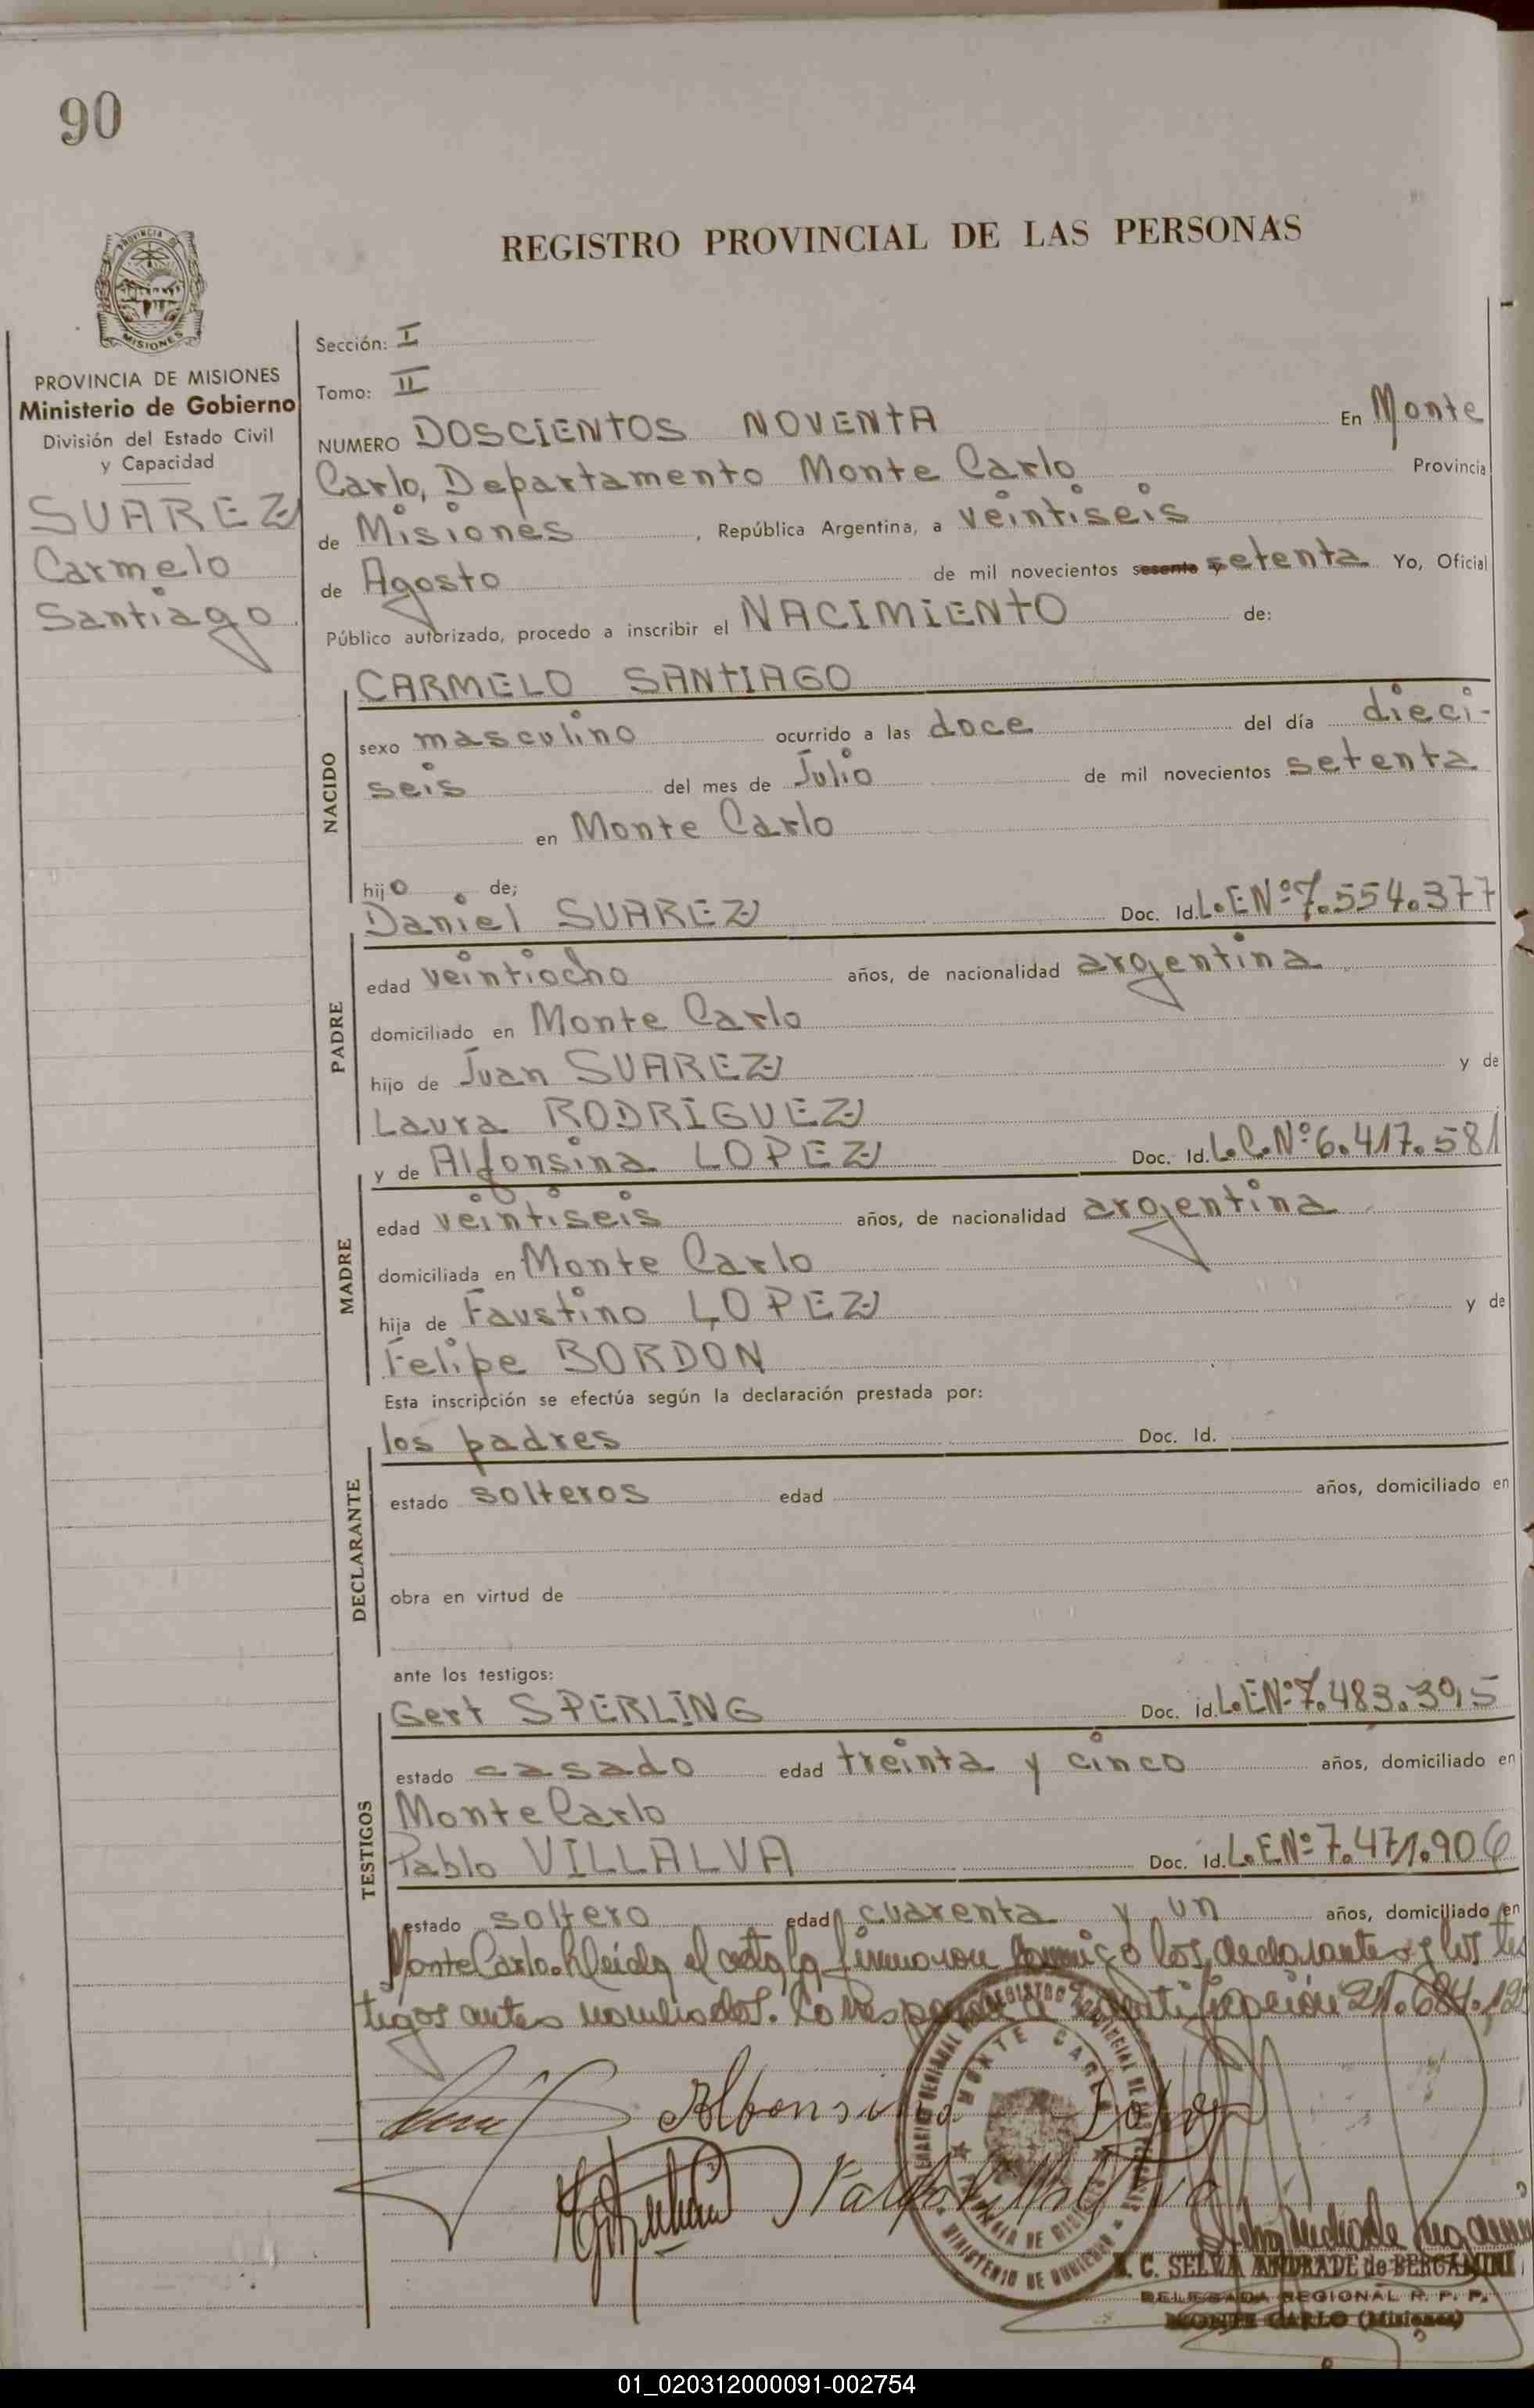 90
REGISTRO PROVINCIAL DE LAS PERSONAS
PROVINCIA DE
MISIONES
PROVINCIA DE MISIONES
Ministerio de Gobierno
División del Estado Civil
y Capacidad
SUAREZ
Carmelo
Santiago
Sección: I
Tomo: II
NUMERO DOSCIENTOS NOVENTA En Monte
Carlo, Departamento Monte Carlo Provincia
de Misiones , República Argentina, a veintiseis
de Agosto de mil novecientos sesenta y setenta Yo, Oficial
Público autorizado, procedo a inscribir el NACIMIENTO de:
NACIDO
CARMELO SANTIAGO
sexo masculino ocurrido a las doce del día dieci-
seis del mes de Julio de mil novecientos setenta
en Monte Carlo
hijo de;
PADRE
Daniel SUAREZ Doc. Id. L.E Nº 7.554.377
edad veintiocho años, de nacionalidad argentina
domiciliado en Monte Carlo
hijo de Juan SUAREZ y de
Laura RODRIGUEZ
MADRE
y de Alfonsina LOPEZ Doc. Id. L.C.Nº 6.417.581
edad veintiseis años, de nacionalidad argentina
domiciliada en Monte Carlo
hija de Faustino LOPEZ y de
Felipe BORDON
Esta inscripción se efectúa según la declaración prestada por:
DECLARANTE
los padres Doc. Id.
estado solteros edad años, domiciliado en
obra en virtud de
ante los testigos:
TESTIGOS
Gert SPERLING Doc. id. L.E Nº 7.483.395
estado casado edad treinta y cinco años, domiciliado en
Monte Carlo
Pablo VILLALVA Doc. Id. L.E Nº 7.471.906
estado soltero edad cuarenta y un años, domiciliado en
Monte Carlo. leída el acta la firmaron conmigo los declarantes y los tes
tigos antes nombrados.
Alfonsina Lopez
MONTE CARLO
MINISTERIO DE GOBIERNO
E. C. SELVA ANDRADE de BERGAMINI
DELEGADA REGIONAL R. P. P.
MONTE CARLO (Misiones)
01_020312000091-002754